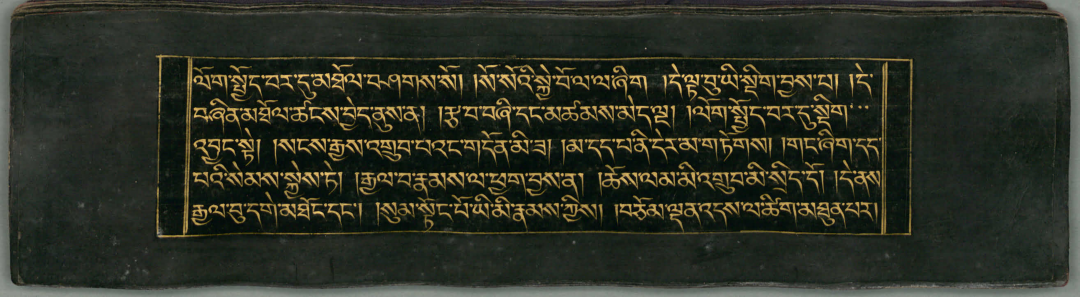 ལོག་སྤྱོད་བར་དུ་མཐོལ་བཤགས་སོ། །སོ་སོའི་སྐྱེ་བོ་ལ་ལ་ཞིག །དེ་ལྟ་བུ་ཡི་སྡིག་བྱས་པ། །དེ་
བཞིན་མཐོལ་ཚངས་བྱེད་ནུས་ན། །རྩ་བ་བཞི་དང་མཚམས་མེད་ལྔ། །ལོག་སྤྱོད་བར་དུ་སྡིག་
འབྱང་སྟེ། །སངས་རྒྱས་འགྲུབ་པའང་གདོན་མི་ཟ། །མ་དད་པ་ནི་དེར་མ་གཏོགས། །གང་ཞིག་དད་
པའི་སེམས་སྐྱེས་ཏེ། །རྒྱལ་བ་རྣམས་ལ་ཕྱག་བྱས་ན། །ཆོས་ལམ་མི་འགྲུབ་མི་སྲིད་དོ། །དེ་ནས་
རྒྱལ་བུ་དགེ་མཐོང་དང་། །སུམ་སྟོང་པོ་ཡི་མི་རྣམས་ཀྱིས། །བཅོམ་ལྡན་འདས་ལ་ཚིག་མཐུན་པར།